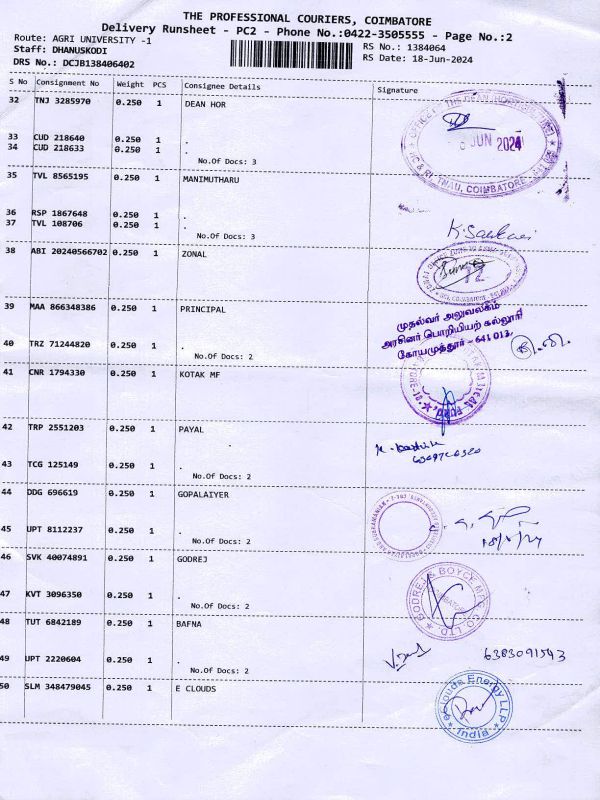 THE PROFESSIONAL COURIERS, COIMBATORE
Delivery Runsheet - PC2 - Phone No.:0422-3505555 - Page No.:2
Route: AGRI UNIVERSITY -1
RS No.: 1384064
Staff: DHANUSKODI
RS Date: 18-Jun-2024
DRS No.: DCJB138406402
S No Consignment No Weight PCS Consignee Details Signature
32 TNJ 3285970 0.250 1 DEAN HOR
JUN 2024
COIMBATORE
33 CUD 218640 0.250 1 .
34 CUD 218633 0.250 1 .
No.Of Docs: 3
35 TVL 8565195 0.250 1 MANIMUTHARU
36 RSP 1867648 0.250 1 .
37 TVL 108706 0.250 1 .
No.Of Docs: 3
38 ABI 20240566702 0.250 1 ZONAL
39 MAA 866348386 0.250 1 PRINCIPAL
முதல்வர் அலுவலகம்
அரசினர் பொறியியற் கல்லூரி
கோயமுத்தூர் - 641 013.
40 TRZ 71244820 0.250 1 .
No.Of Docs: 2
41 CNR 1794330 0.250 1 KOTAK MF
42 TRP 2551203 0.250 1 PAYAL
43 TCG 125149 0.250 1 .
No.Of Docs: 2
44 DDG 696619 0.250 1 GOPALAIYER
45 UPT 8112237 0.250 1 .
No.Of Docs: 2
46 SVK 40074891 0.250 1 GODREJ
GODREJ & BOYCE MFG. CO. LTD.
47 KVT 3096350 0.250 1 .
No.Of Docs: 2
48 TUT 6842189 0.250 1 BAFNA
6383091543
49 UPT 2220604 0.250 1 .
No.Of Docs: 2
50 SLM 348479045 0.250 1 E CLOUDS
e clouds Energy LLP
India